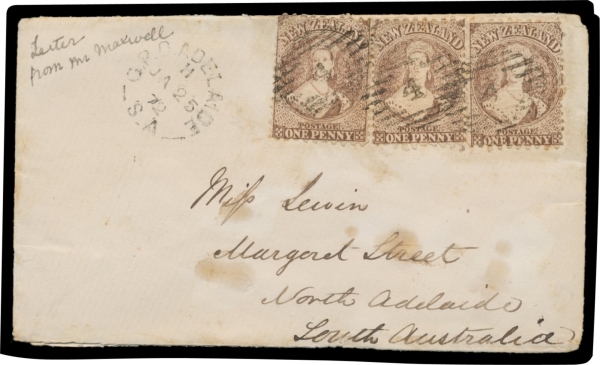 Letter
from Mr Maxwell
G.P.O. ADELAIDE
JA 25
72
S.A
NEW ZEALAND
POSTAGE
ONE PENNY
NEW ZEALAND
POSTAGE
ONE PENNY
NEW ZEALAND
POSTAGE
ONE PENNY
Miss Lewin
Margaret Street
North Adelaide
South Australia